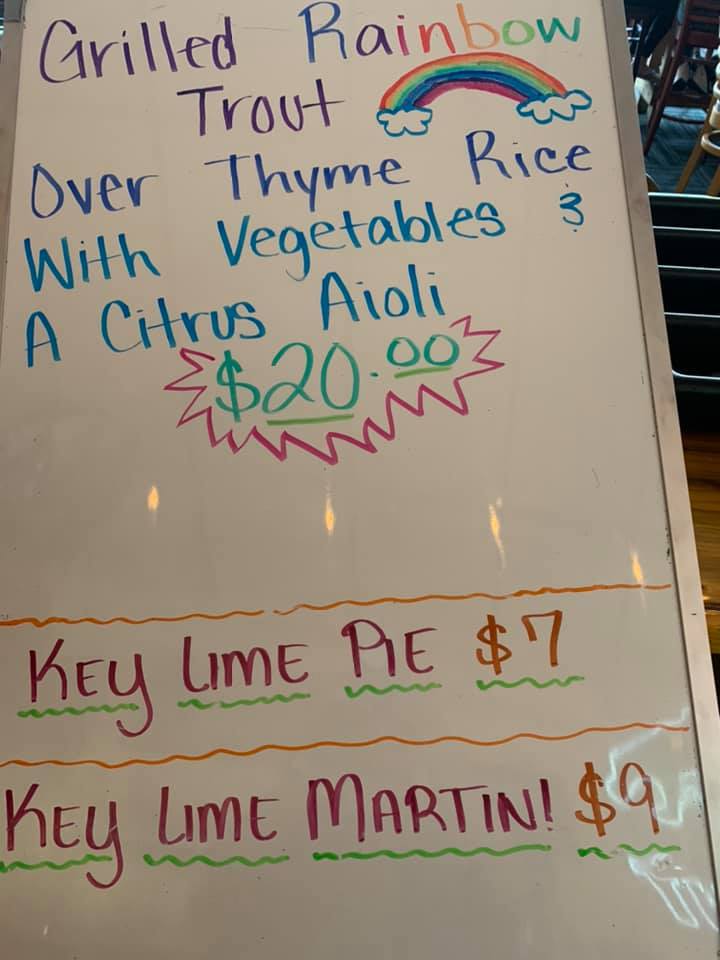 Grilled Rainbow
Trout
Over Thyme Rice
With Vegetables &
A Citrus Aioli
$20.00
KEY LIME PIE $7
KEY LIME MARTINI $9